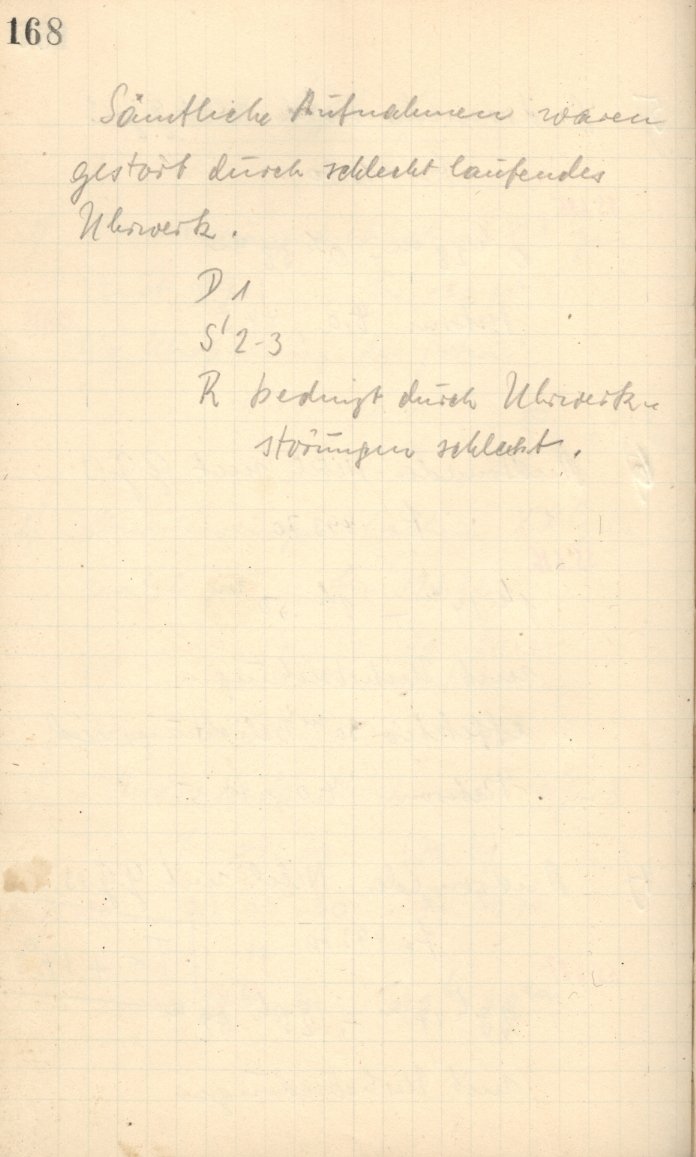 168
Sämtliche Aufnahmen waren
gestört durch schlecht laufendes
Uhrwerk.
D 1
S 2-3
R bedingt durch Uhrwerk-
störungen schlecht.